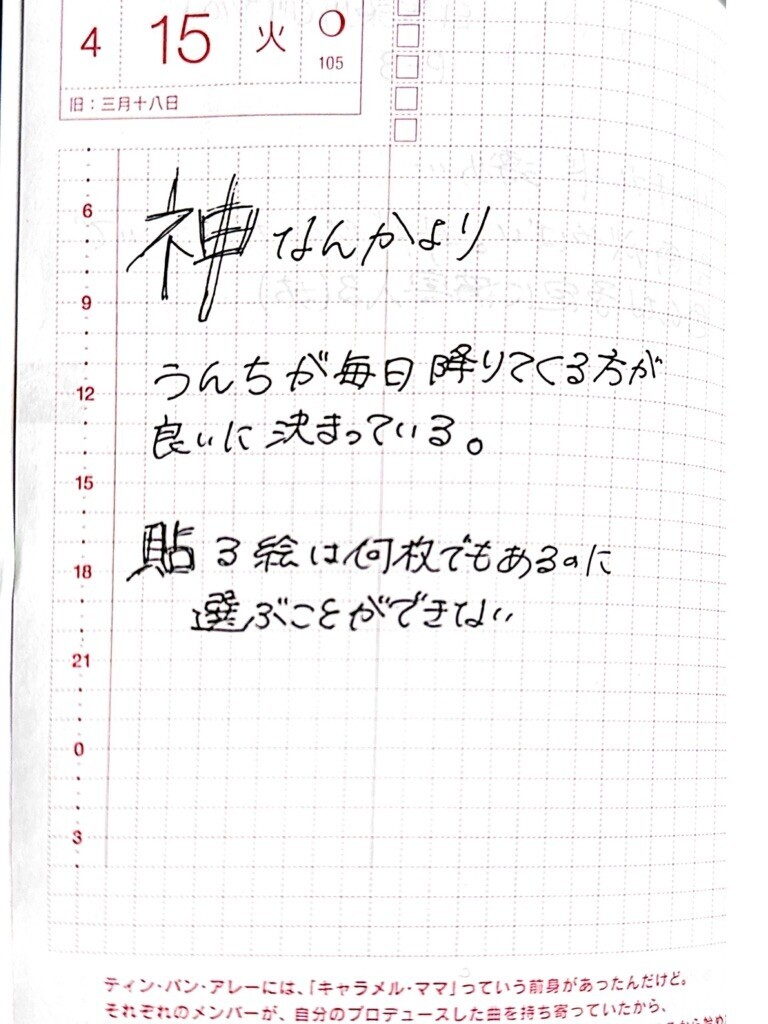 4 15 火 ○
105
旧：三月十八日
6
神なんかより
9
うんちが毎日降りてくる方が
12
良いに決まっている。
15
貼る絵は何枚でもあるのに
18
選ぶことができない
21
0
3
ティン・パン・アレーには、「キャラメル・ママ」っていう前身があったんだけど。
それぞれのメンバーが、自分のプロデュースした曲を持ち寄っていたから、